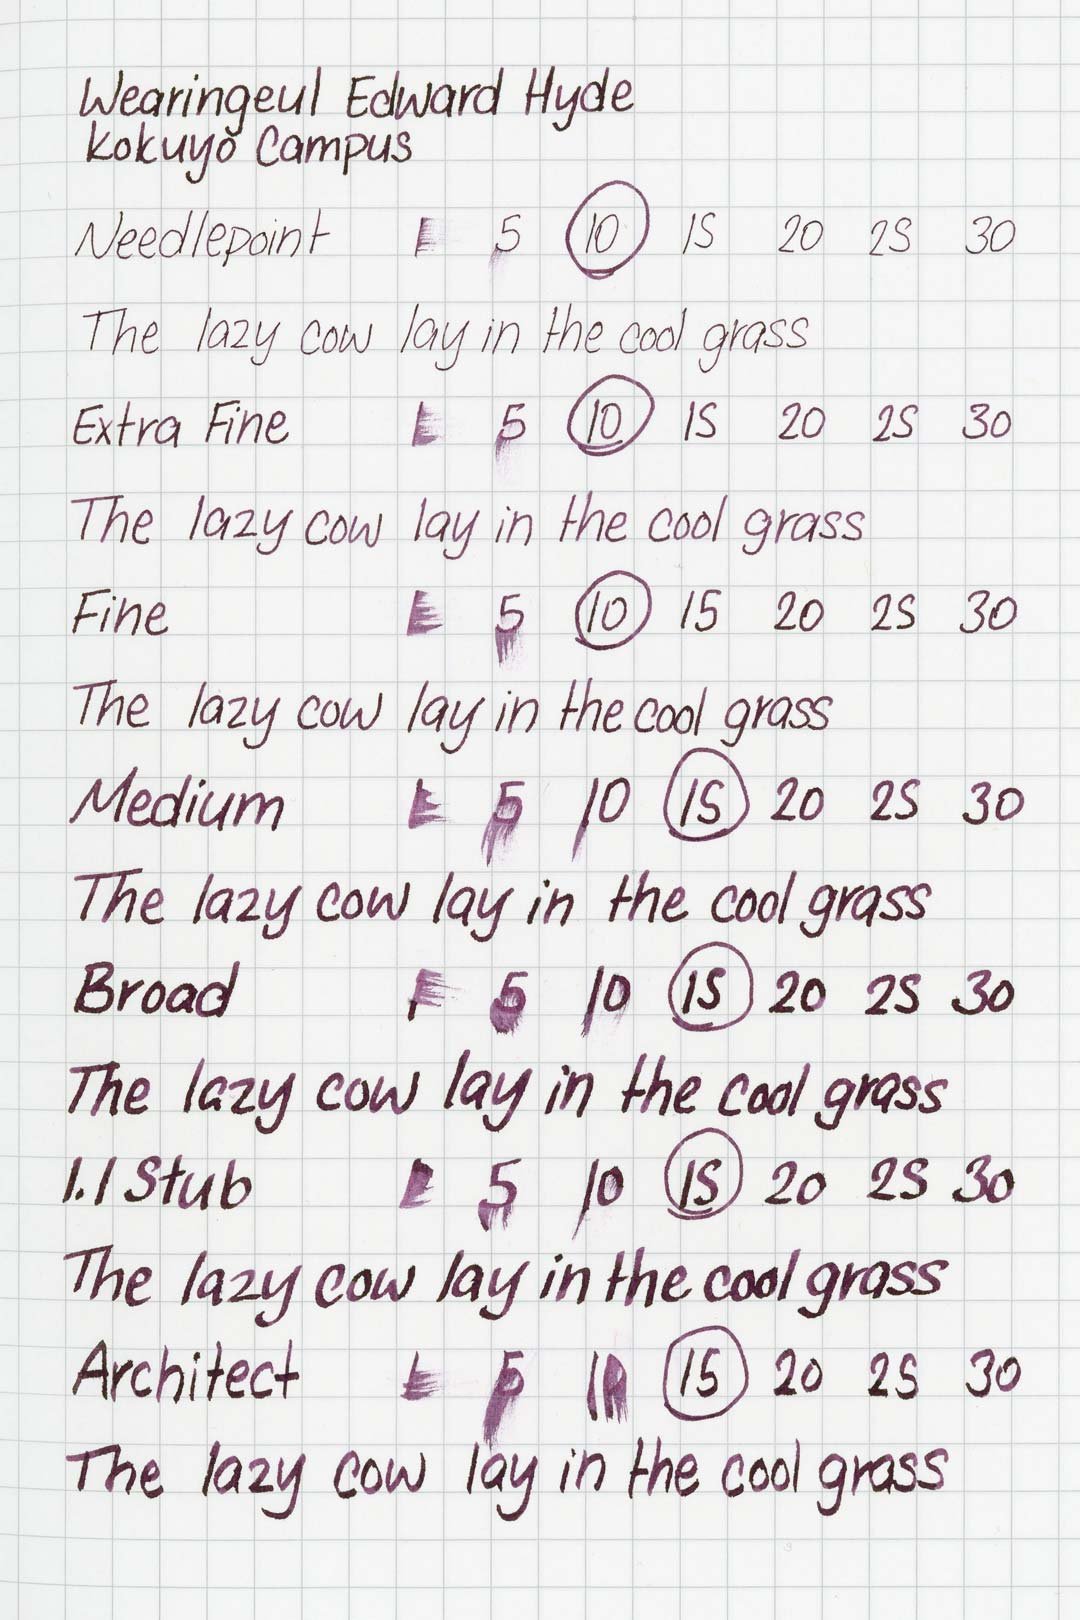 Wearingeul Edward Hyde
Kokuyo Campus
Needlepoint 1 5 10 15 20 25 30
The lazy cow lay in the cool grass
Extra Fine 1 5 10 15 20 25 30
The lazy cow lay in the cool grass
Fine 1 5 10 15 20 25 30
The lazy cow lay in the cool grass
Medium 1 5 10 15 20 25 30
The lazy cow lay in the cool grass
Broad 1 5 10 15 20 25 30
The lazy cow lay in the cool grass
1.1 Stub 1 5 10 15 20 25 30
The lazy cow lay in the cool grass
Architect 1 5 10 15 20 25 30
The lazy cow lay in the cool grass